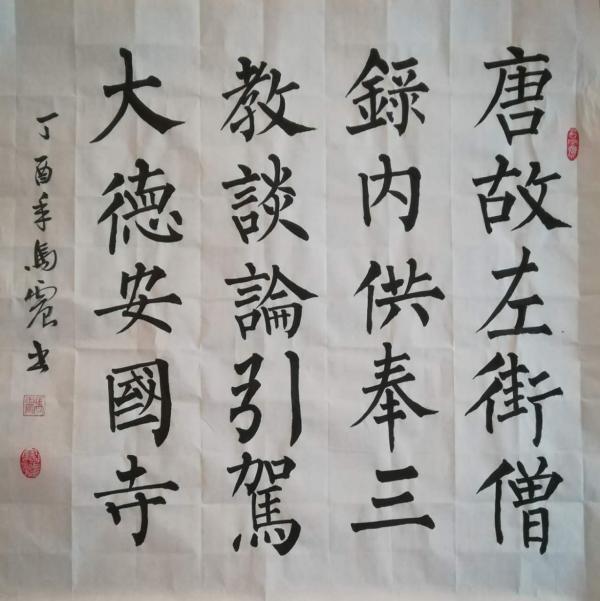 唐故左街僧
錄内供奉三
教談論引駕
大德安國寺
丁酉年馬震书